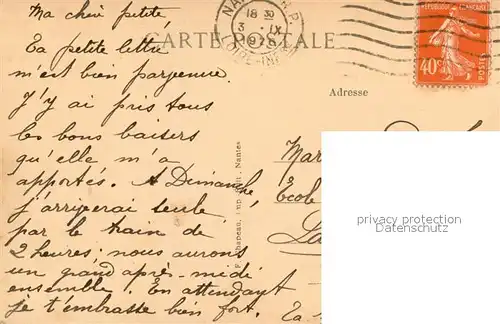 Ma chère petite,
NA
18 30
3 IX
CARTE POSTALE
RÉPUBLIQUE FRANÇAISE
40c
POSTES
Ta petite lettre
m'est bien parvenue.
Adresse
J'y ai pris tous
les bons baisers
qu'elle m'a
apportés. A Dimanche,
j'arriverai seule
par le train de
2 heures; nous aurons
un grand après-midi
ensemble. En attendant
je t'embrasse bien fort.
Ta
Chapeau, Imp. Edit., Nantes
Mar
École
privacy protection
Datenschutz